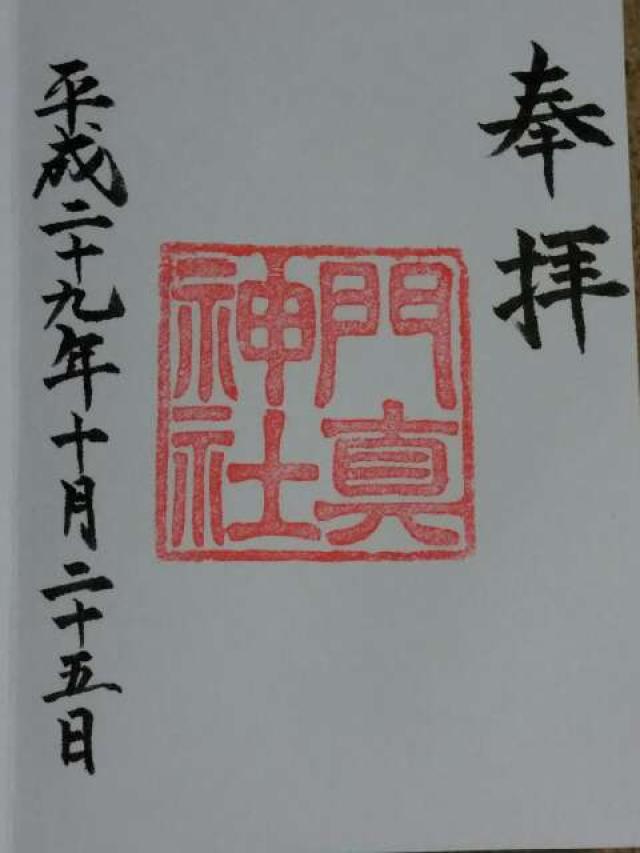 奉拝
門真
神社
平成二十九年十月二十五日